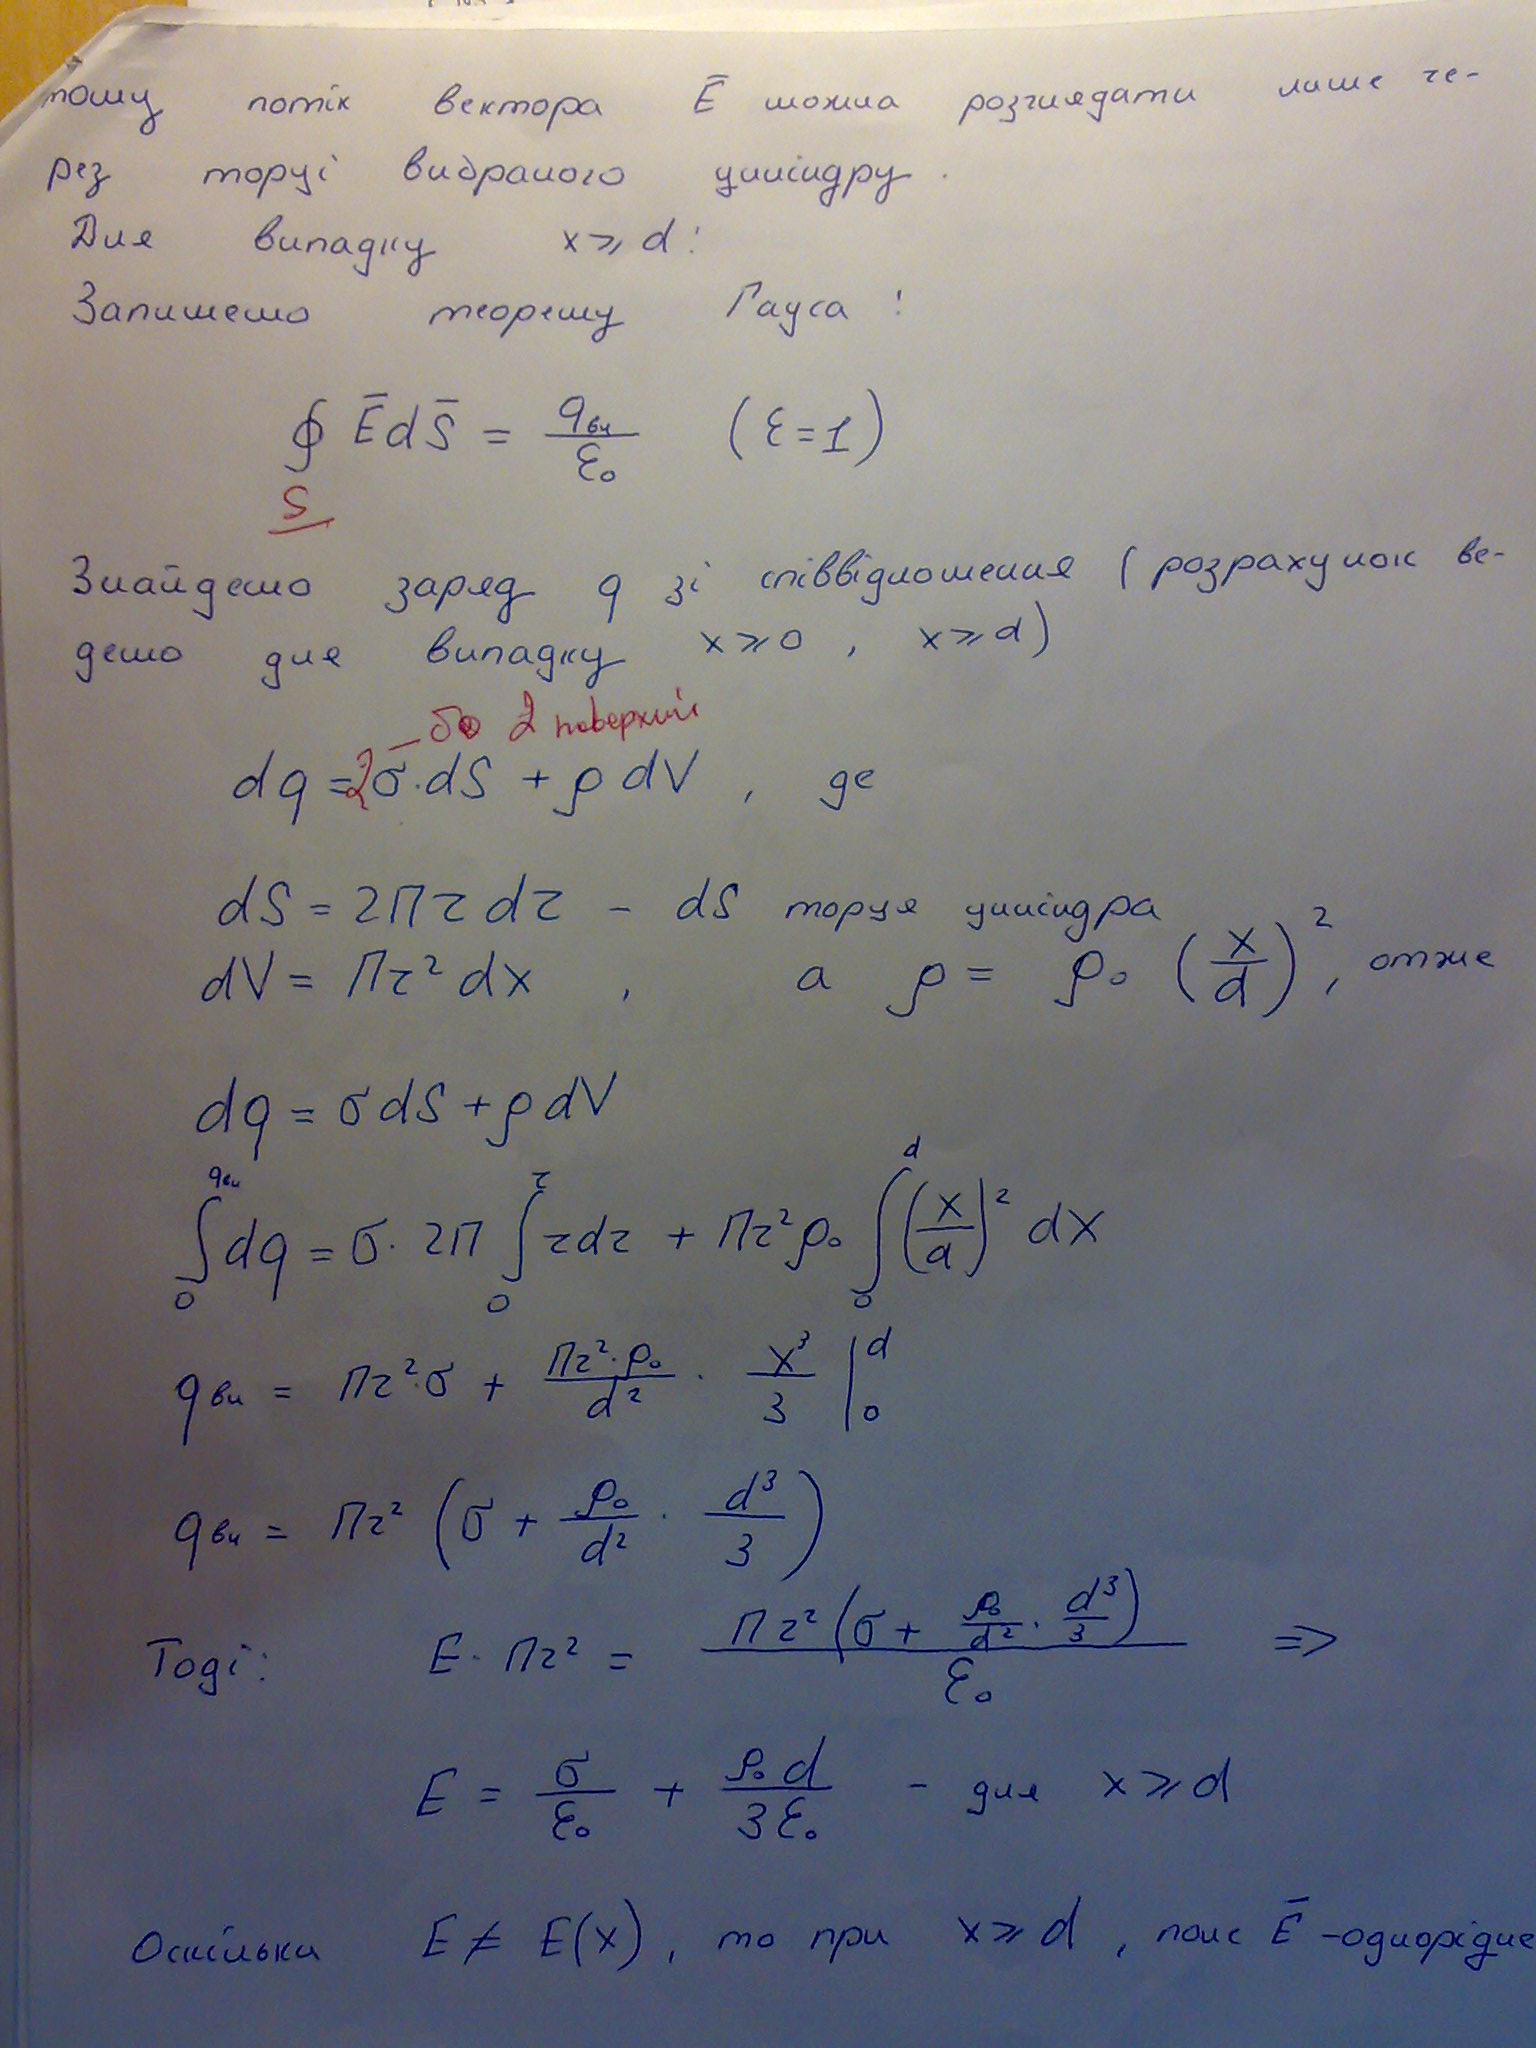 тому потік вектора Ē можна розглядати лише че-
рез торці вибраного циліндру.
Для випадку x ⩾ d:
Запишемо теорему Гауса:
∮ Ē dS̄ = qвн / ε₀ (ε = 1)
S
Знайдемо заряд q зі співвідношення (розрахунок ве-
демо для випадку x ⩾ 0, x ⩾ d)
– бо 2 поверхні
dq = 2σ·dS + ρ dV, де
dS = 2πr dr – dS торця циліндра
dV = πr² dx, а ρ = ρ₀ (x/d)², отже
dq = σ dS + ρ dV
∫₀^qвн dq = σ·2π ∫₀^r r dr + πr² ρ₀ ∫₀^d (x/d)² dx
qвн = πr²·σ + (πr²·ρ₀ / d²) · (x³ / 3) |₀^d
qвн = πr² (σ + (ρ₀ / d²) · (d³ / 3))
Тоді: E · πr² = πr² (σ + (ρ₀ / d²) · (d³ / 3)) / ε₀ =>
E = σ / ε₀ + ρ₀ d / 3ε₀ – для x ⩾ d
Оскільки E ≠ E(x), то при x ⩾ d, поле Ē – однорідне